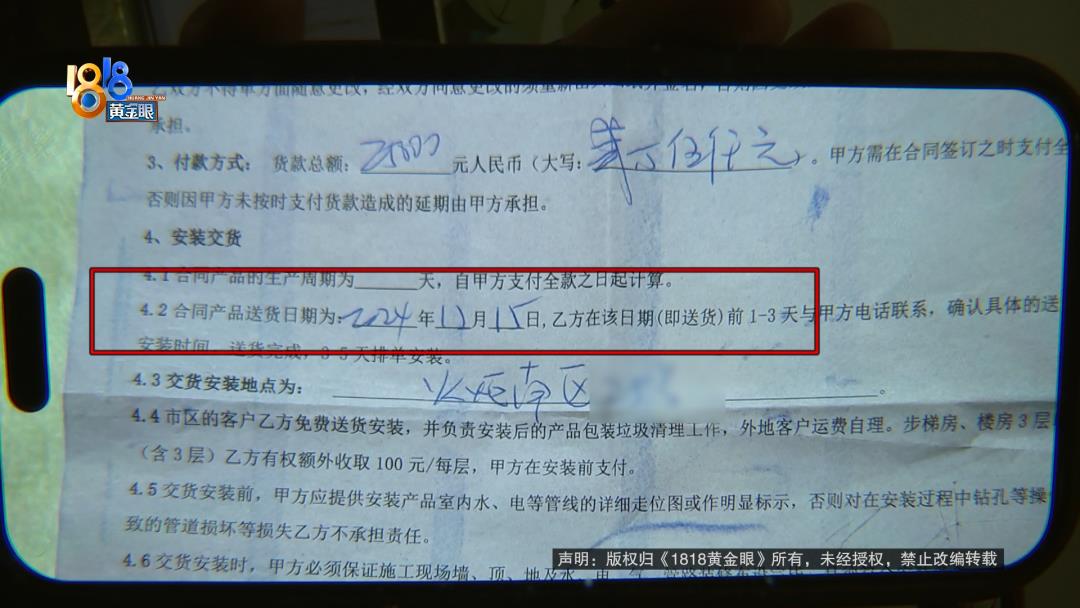 1818
HUANG JIN YAN
黄金眼
双方不得单方面随意更改，经双方同意更改的须重新
承担。
3、付款方式： 货款总额：25000元人民币（大写：贰万伍仟元）。甲方需在合同签订之时支付全
否则因甲方未按时支付货款造成的延期由甲方承担。
4、安装交货
4.1 合同产品的生产周期为______天，自甲方支付全款之日起计算。
4.2 合同产品送货日期为：2024年12月15日，乙方在该日期(即送货)前 1-3 天与甲方电话联系，确认具体的送
安装时间，送货完成，3-5 天排单安装。
4.3 交货安装地点为： 南区
4.4 市区的客户乙方免费送货安装，并负责安装后的产品包装垃圾清理工作，外地客户运费自理。步梯房、楼房 3 层
（含 3 层）乙方有权额外收取 100 元/每层，甲方在安装前支付。
4.5 交货安装前，甲方应提供安装产品室内水、电等管线的详细走位图或作明显标示，否则对在安装过程中钻孔等操
致的管道损坏等损失乙方不承担责任。
4.6 交货安装时，甲方必须保证施工现场墙、顶、地及水、电、气
声明：版权归《1818黄金眼》所有，未经授权，禁止改编转载